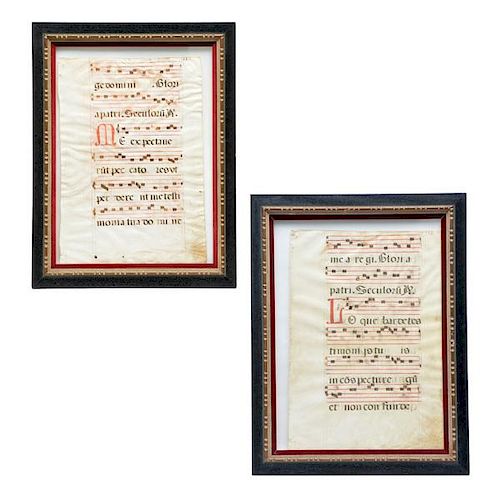 ge domini Glori
a patri. Seculorū A.
Me expectave
rūt pec cato res ut
per dere int me testi
monia tua do mi ne
me a re gi. Glori a
patri. Seculorū A.
Lo que bar de tes
ti moni is tu is
in cōs pectu re gū
et non con fun de